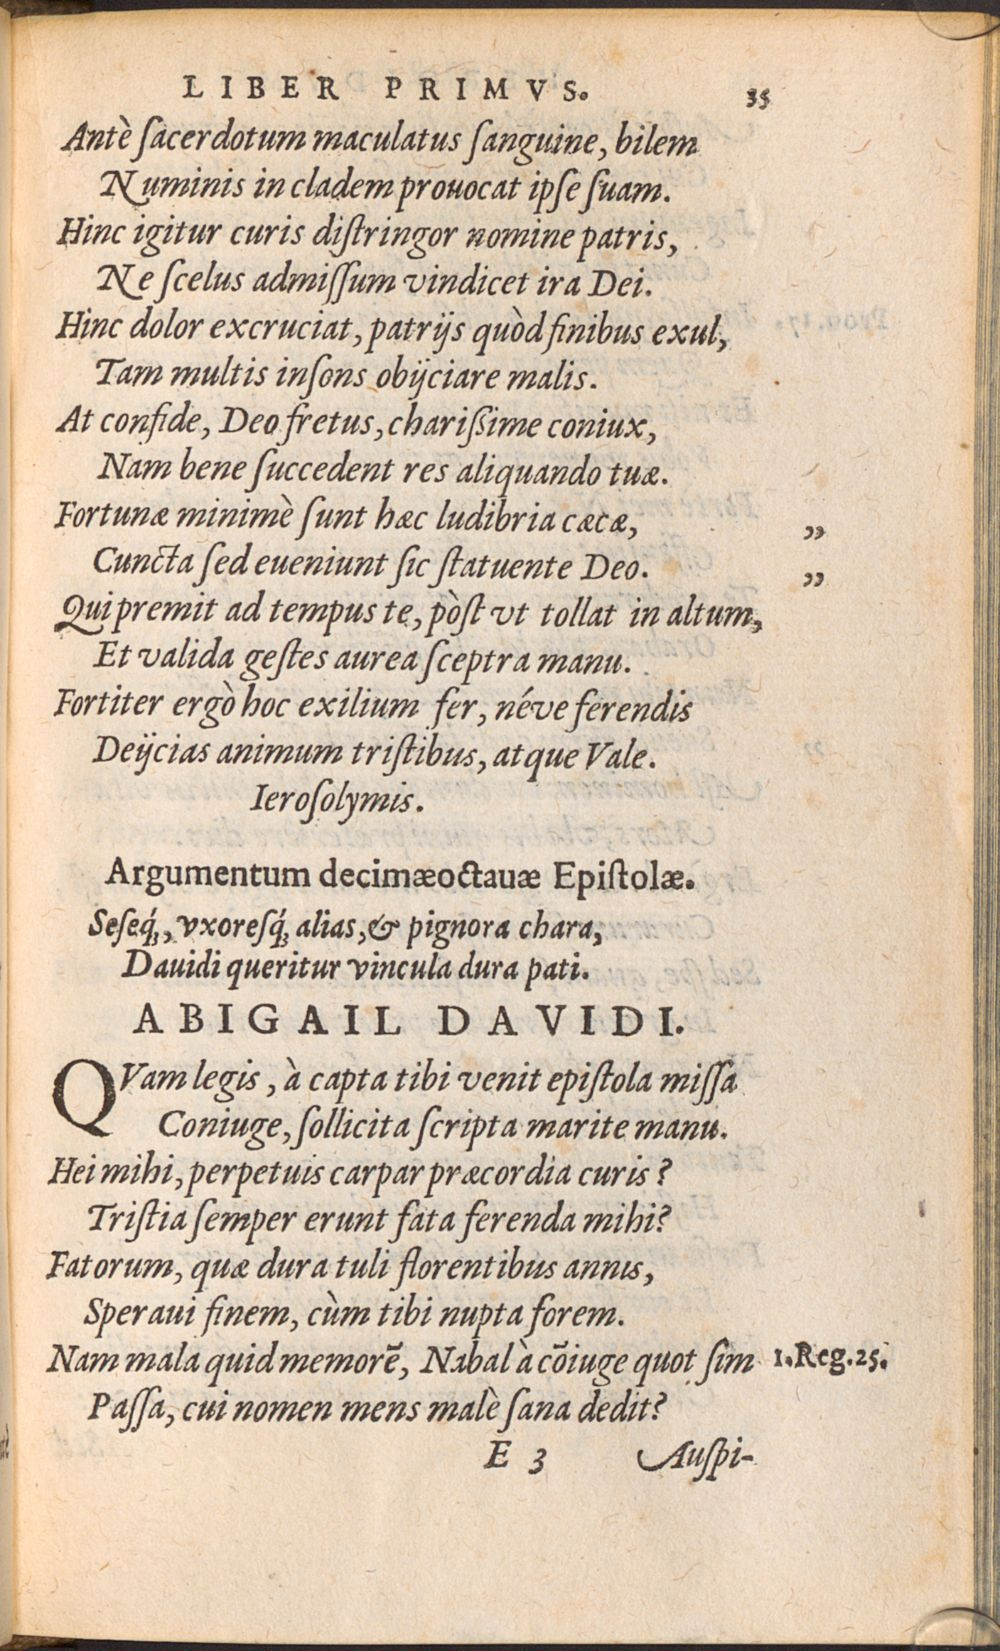 LIBER PRIMVS. 35
Antè ſacerdotum maculatus ſanguine, bilem
Numinis in cladem prouocat ipſe ſuam.
Hinc igitur curis diſtringor nomine patris,
Ne ſcelus admiſſum vindicet ira Dei.
Hinc dolor excruciat, patrijs quòd finibus exul,
Tam multis inſons obijciare malis.
At confide, Deo fretus, charißime coniux,
Nam bene ſuccedent res aliquando tuæ.
Fortunæ minimè ſunt hæc ludibria cæcæ, ”
Cuncta ſed eueniunt ſic ſtatuente Deo. ”
Qui premit ad tempus te, pòſt vt tollat in altum,
Et valida geſtes aurea ſceptra manu.
Fortiter ergò hoc exilium fer, néve ferendis
Deijcias animum triſtibus, atque Vale.
Ieroſolymis.
Argumentum decimæoctauæ Epiſtolæ.
Seſeq́ꝫ, vxoreſq́ꝫ alias, & pignora chara,
Dauidi queritur vincula dura pati.
ABIGAIL DAVIDI.
QVam legis, à capta tibi venit epiſtola miſſa
Coniuge, ſollicita ſcripta marite manu.
Hei mihi, perpetuis carpar præcordia curis?
Triſtia ſemper erunt fata ferenda mihi?
Fatorum, quæ dura tuli florentibus annis,
Speraui finem, cùm tibi nupta forem.
Nam mala quid memorẽ, Nabal à cõiuge quot ſim 1.Reg.25.
Paſſa, cui nomen mens malè ſana dedit?
E 3 Auſpi-